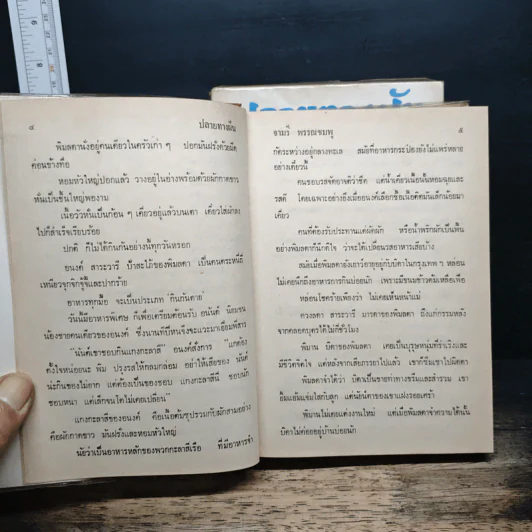 ๔ ปลายทางฝัน
พิมลดานั่งอยู่คนเดียวในครัวเก่า ๆ ปอกมันฝรั่งด้วยมีด
ค่อนข้างทื่อ
หอมหัวใหญ่ปอกแล้ว วางอยู่ในอ่างพร้อมด้วยผักกาดขาว
หั่นเป็นชิ้นใหญ่พองาม
เนื้อวัวหั่นเป็นก้อน ๆ เคี่ยวอยู่แล้วบนเตา เดี๋ยวใส่ผักลง
ไปก็สำเร็จเรียบร้อย
ปกติ ก็ไม่ได้กินกันอย่างนี้ทุกวันหรอก
อนงค์ สาระวารี ป้าสะใภ้ของพิมลดา เป็นคนตระหนี่ถี่
เหนียวจุกจิกจู้จี้และปากร้าย
อาหารทุกมื้อ จะเป็นประเภท กินกันตาย
วันนี้มีอาหารพิเศษ ก็เพื่อเตรียมต้อนรับ อนันต์ นิยมชน
น้องชายคนเดียวของอนงค์ ซึ่งนานทีปีหนจึงจะแวะมาเยี่ยมพี่สาว
"นันต์เขาชอบกินแกงกะลาสี" อนงค์สั่งการ "แกต้อง
ตั้งใจหน่อยนะ พิม ปรุงรสให้กลมกล่อม อย่าให้เสียของ นันต์
น่ะกินของไม่ยาก แต่ต้องเป็นของชอบ แกงกะลาสีนี่ ชอบนัก
ชอบหนา แต่เล็กจนโตไม่เคยเปลี่ยน"
แกงกะลาสีของอนงค์ คือเนื้อต้มซุปรวมกับผักสามอย่าง
คือผักกาดขาว มันฝรั่งและหอมหัวใหญ่
นัยว่าเป็นอาหารหลักของพวกกะลาสีเรือ ที่มีอาหารจำ
จามรี พรรณชมพู ๕
กัดระหว่างอยู่กลางทะเล สมัยที่อาหารกระป๋องยังไม่แพร่หลาย
อย่างเดี๋ยวนี้
คนชอบรสจัดอาจติว่าชืด แต่น้ำเคี่ยวเนื้อนั้นหอมฉุยและ
รสดี โดยเฉพาะอย่างยิ่งเมื่ออนงค์เลือกซื้อเนื้อติดมันเล็กน้อยมา
เคี่ยว
คนที่ต้องรับประทานแต่ผัดผัก หรือน้ำพริกผักเป็นพื้น
อย่างพิมลดาก็นึกดีใจ ว่าจะได้เปลี่ยนรสอาหารเสียบ้าง
สมัยเมื่อพิมลดายังเยาว์อายุอยู่กับบิดาในกรุงเทพ ฯ หล่อน
ไม่เคยนึกถึงอาหารการกินบ่อยนัก เพราะมีขนมข้าวต้มเหลือเฟือ
หล่อนโชคร้ายเพียงว่า ไม่เคยเห็นหน้าแม่
ดวงลดา สาระวารี มารดาของพิมลดา ถึงแก่กรรมหลัง
จากคลอดบุตรได้ไม่กี่ชั่วโมง
พิมาน บิดาของพิมลดา เคยเป็นบุรุษหนุ่มที่ร่าเริงและ
มีชีวิตจิตใจ แต่หลังจากเสียภรรยาไปแล้ว เขาก็ซึมเซาไปผิดตา
พิมลดาจำได้ว่า บิดาเป็นชายท่าทางขรึมและสำรวม เขา
ยิ้มแย้มแจ่มใสกับลูก แต่นัยน์ตาของเขาแฝงรอยเศร้า
พิมานไม่เคยแต่งงานใหม่ แต่เมื่อพิมลดาจำความได้นั้น
บิดาไม่ค่อยอยู่บ้านบ่อยนัก